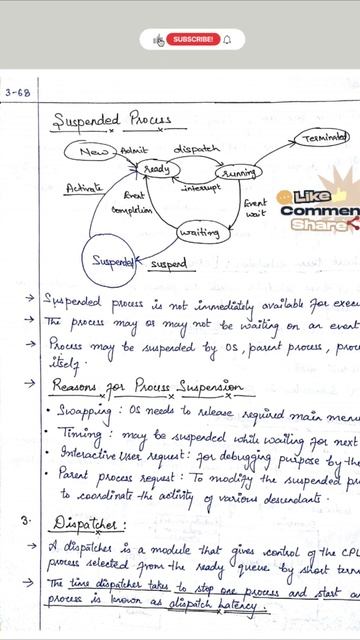 SUBSCRIBE!
3-68
Suspended Process
New
Admit
dispatch
Terminated
ready
running
Activate
interrupt
Event
completion
Event
wait
waiting
Suspended
suspend
Like
Commen
Share
→ Suspended process is not immediately available for execu
→ The process may or may not be waiting on an event
→ Process may be suspended by OS, parent process, proc
itself.
→ Reasons for Process Suspension
• Swapping : OS needs to release required main memo
• Timing : may be suspended while waiting for next
• Interactive User request : for debugging purpose by the
• Parent process request : To modify the suspended pr
to coordinate the activity of various descendants.
3. Dispatcher :
→ A dispatcher is a module that gives control of the CPU
process selected from the ready queue by short term
→ The time dispatcher takes to stop one process and start an
process is known as dispatch latency.